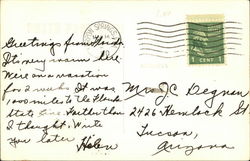 Greetings from Florida
It is very warm here.
Were on a vacation
for 2 weeks. It was
1000 miles to the Florida
State line. Farther than
I thought. Write
you later
Helen
1 CENT 1
Mr J C Degnan
2426 Hemlock St
Tucson,
Arizona